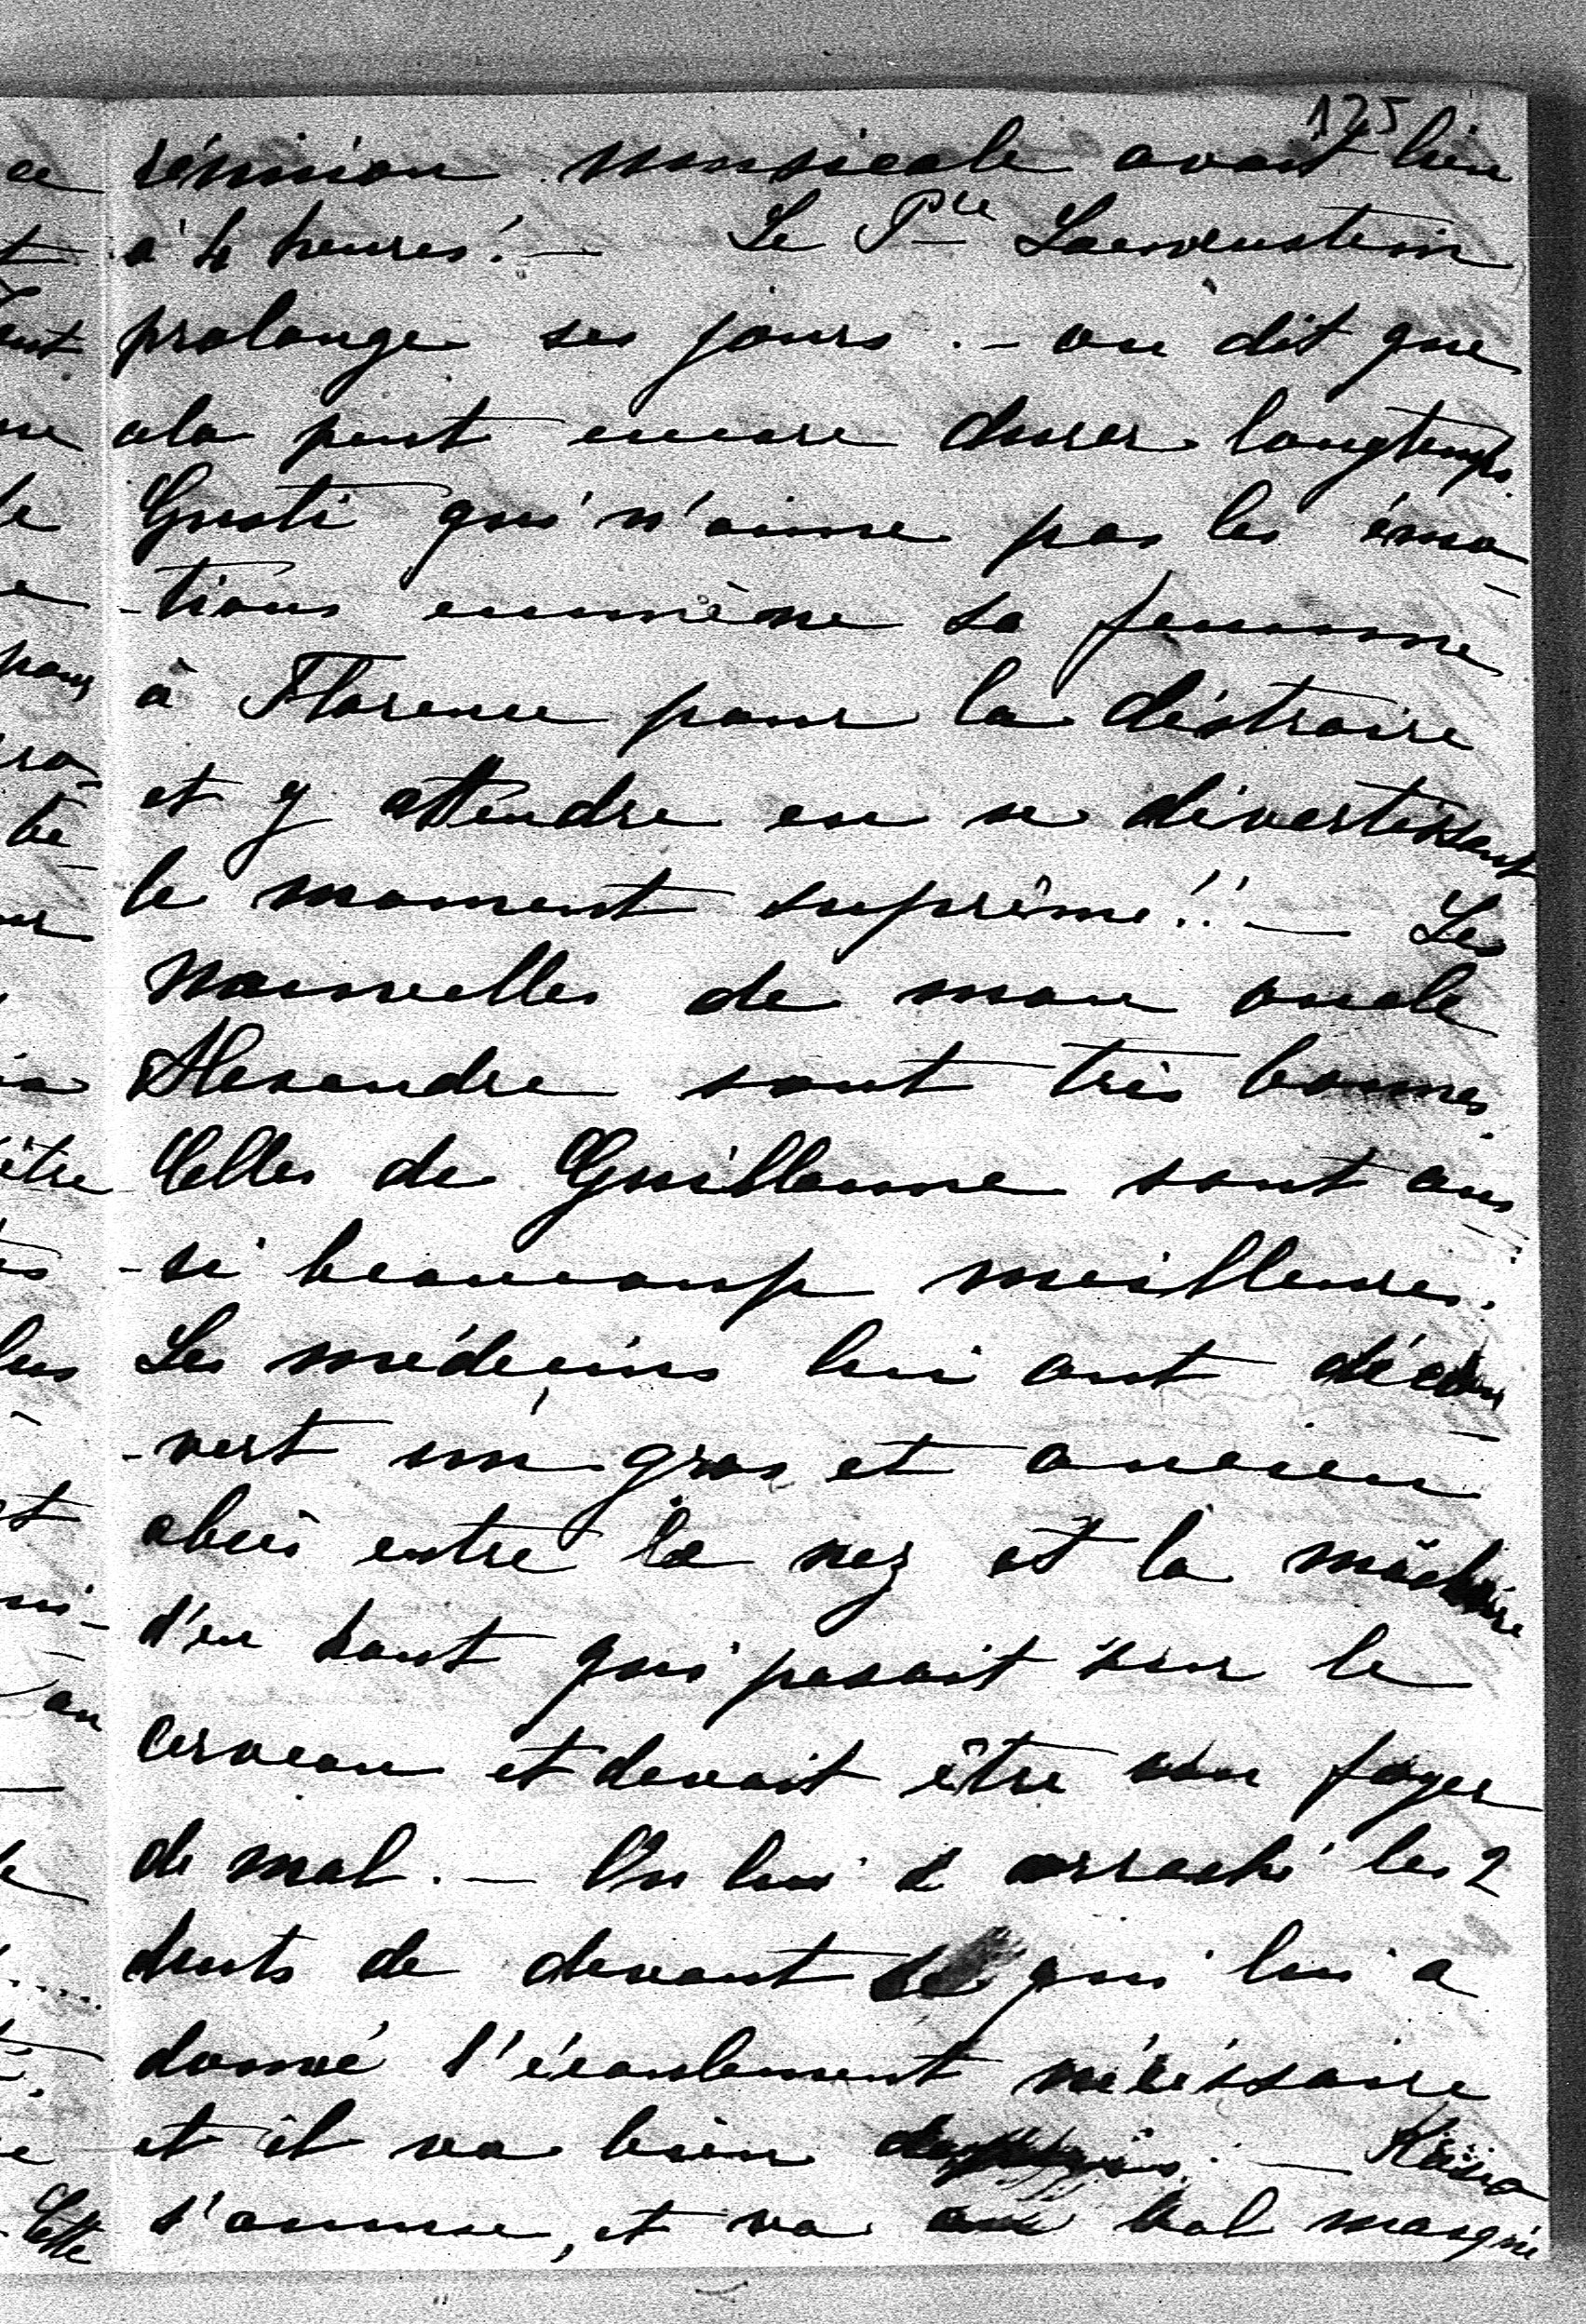 125
réunion musicale avait lieu
à 4 heures! — Le Pce Loewenstein
prolonge ses jours. — on dit que
cela peut encore durer longtemps.
Gusti qui n'aime pas les émo-
-tions emmène sa femme
à Florence pour la distraire
et y attendre en se divertissant
le moment suprême!! — Les
nouvelles de mon oncle
Alexandre sont très bonnes.
Celles de Guillaume sont aus-
-si beaucoup meilleures.
Les médecins lui ont décou-
-vert un gros et ancien
abcès entre le nez et la mâchoire
d'en haut qui pesait sur le
cerveau et devait être un foyer
de mal. — On lui a arraché les 2
dents de devant ce qui lui a
donné l'écoulement nécessaire
et il va bien depuis. —
s'amuse, et va au bal masqué